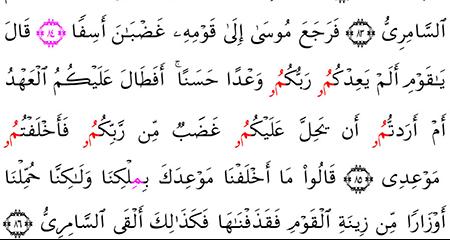 السَّامِرِىُّ ٨٣ فَرَجَعَ مُوسَىٰ إِلَىٰ قَوْمِهِۦ غَضْبَـٰنَ أَسِفًا ٨٤ قَالَ
يَـٰقَوْمِ أَلَمْ يَعِدْكُمُۥ رَبُّكُمُۥ وَعْدًا حَسَنًا ۚ أَفَطَالَ عَلَيْكُمُ الْعَهْدُ
أَمْ أَرَدتُّمُۥ أَن يَحِلَّ عَلَيْكُمُۥ غَضَبٌ مِّن رَّبِّكُمُۥ فَأَخْلَفْتُمُۥ
مَوْعِدِى ٨٥ قَالُوا۟ مَا أَخْلَفْنَا مَوْعِدَكَ بِمِلْكِنَا وَلَـٰكِنَّا حُمِّلْنَا
أَوْزَارًا مِّن زِينَةِ الْقَوْمِ فَقَذَفْنَـٰهَا فَكَذَٰلِكَ أَلْقَى السَّامِرِىُّ ٨٦